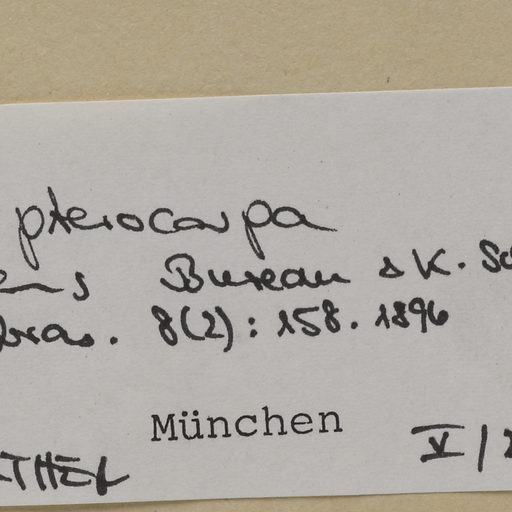 pterocarpa
ens Bureau & K. Sc
bras. 8(2): 158. 1896
München
THEL V/2